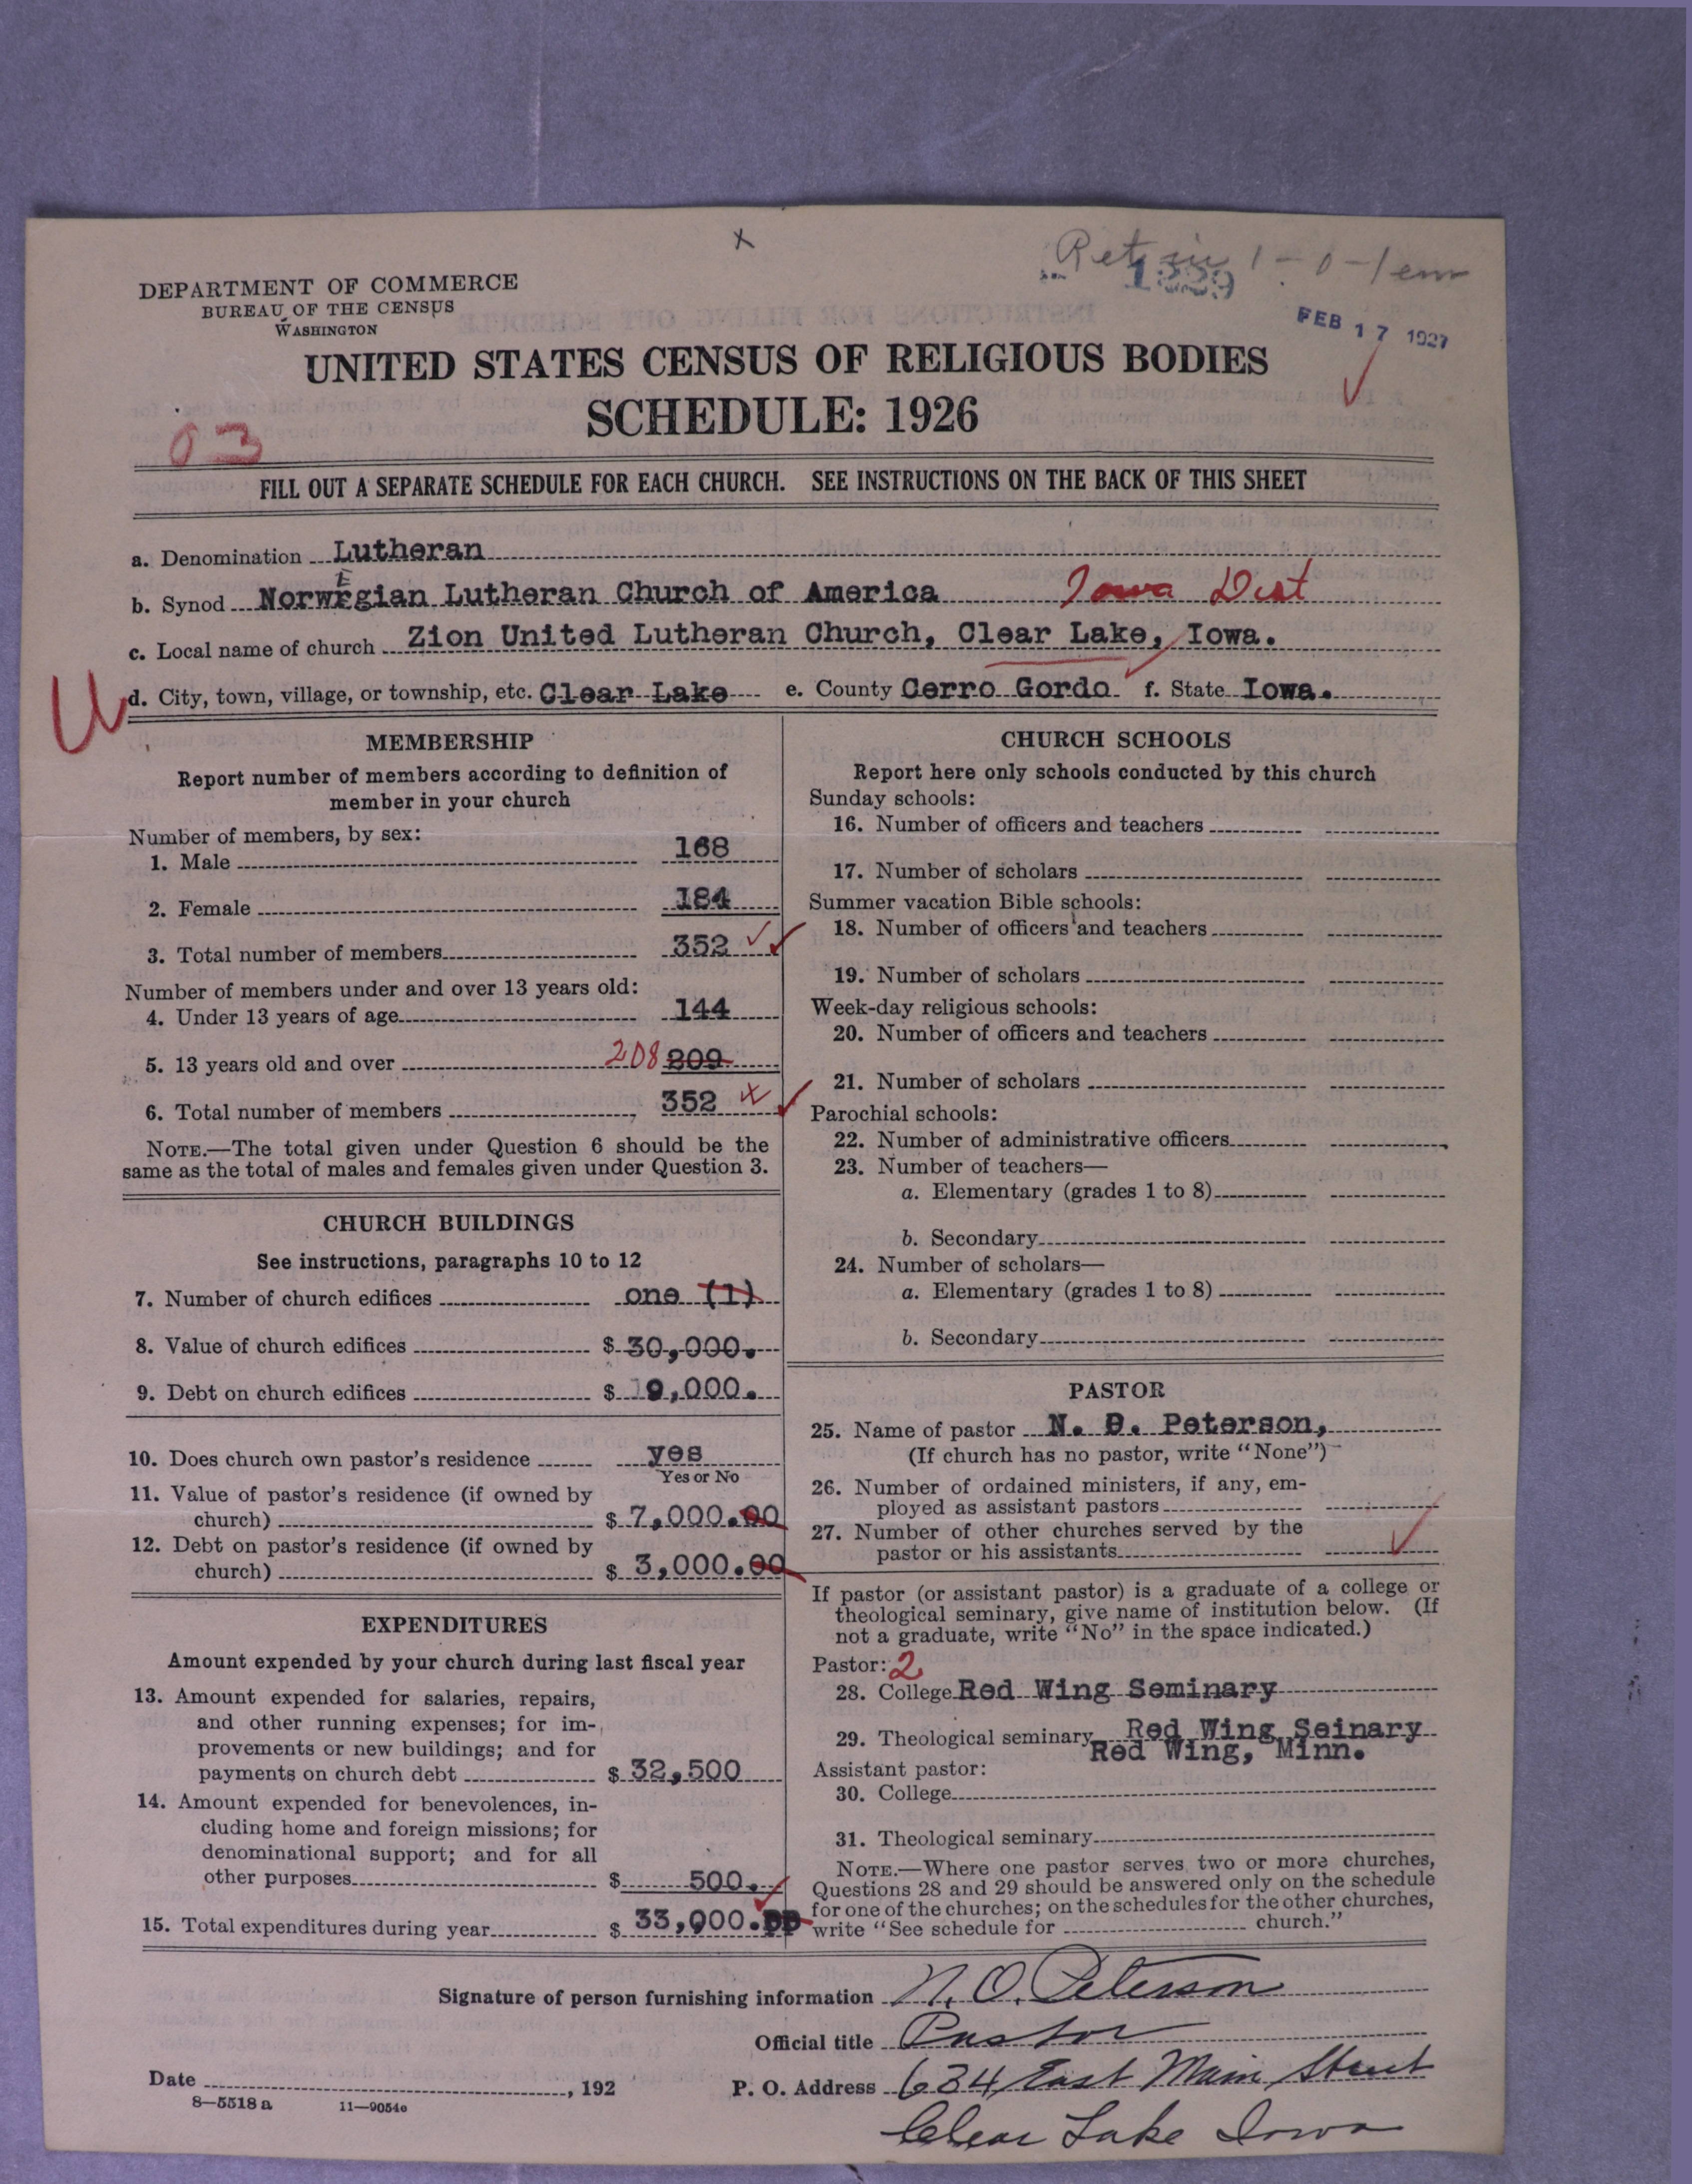 x
Retain 1-0-1 em
1339
FEB 17 1927
DEPARTMENT OF COMMERCE
BUREAU OF THE CENSUS
WASHINGTON
UNITED STATES CENSUS OF RELIGIOUS BODIES
SCHEDULE: 1926
03
FILL OUT A SEPARATE SCHEDULE FOR EACH CHURCH. SEE INSTRUCTIONS ON THE BACK OF THIS SHEET
a. Denomination Lutheran
b. Synod Norwegian Lutheran Church of America Iowa Dist
c. Local name of church Zion United Lutheran Church, Clear Lake, Iowa.
d. City, town, village, or township, etc. Clear Lake e. County Cerro Gordo f. State Iowa.
MEMBERSHIP
Report number of members according to definition of
member in your church
Number of members, by sex:
1. Male 168
2. Female 184
3. Total number of members 352
Number of members under and over 13 years old:
4. Under 13 years of age 144
5. 13 years old and over 208 209
6. Total number of members 352
NOTE.—The total given under Question 6 should be the
same as the total of males and females given under Question 3.
CHURCH BUILDINGS
See instructions, paragraphs 10 to 12
7. Number of church edifices one (1)
8. Value of church edifices $ 30,000.
9. Debt on church edifices $ 9,000.
10. Does church own pastor's residence yes
Yes or No
11. Value of pastor's residence (if owned by
church) $ 7,000.00
12. Debt on pastor's residence (if owned by
church) $ 3,000.00
EXPENDITURES
Amount expended by your church during last fiscal year
13. Amount expended for salaries, repairs,
and other running expenses; for im-
provements or new buildings; and for
payments on church debt $ 32,500
14. Amount expended for benevolences, in-
cluding home and foreign missions; for
denominational support; and for all
other purposes $ 500.
15. Total expenditures during year $ 33,000.
CHURCH SCHOOLS
Report here only schools conducted by this church
Sunday schools:
16. Number of officers and teachers
17. Number of scholars
Summer vacation Bible schools:
18. Number of officers and teachers
19. Number of scholars
Week-day religious schools:
20. Number of officers and teachers
21. Number of scholars
Parochial schools:
22. Number of administrative officers
23. Number of teachers—
a. Elementary (grades 1 to 8)
b. Secondary
24. Number of scholars—
a. Elementary (grades 1 to 8)
b. Secondary
PASTOR
25. Name of pastor N. O. Peterson,
(If church has no pastor, write "None")
26. Number of ordained ministers, if any, em-
ployed as assistant pastors
27. Number of other churches served by the
pastor or his assistants
If pastor (or assistant pastor) is a graduate of a college or
theological seminary, give name of institution below. (If
not a graduate, write "No" in the space indicated.)
Pastor: 2
28. College Red Wing Seminary
29. Theological seminary Red Wing Seinary
Red Wing, Minn.
Assistant pastor:
30. College
31. Theological seminary
NOTE.—Where one pastor serves two or more churches,
Questions 28 and 29 should be answered only on the schedule
for one of the churches; on the schedules for the other churches,
write "See schedule for church."
Signature of person furnishing information N. O. Peterson
Official title Pastor
Date , 192 P. O. Address 634 East Main Street
8—5518 a 11—9054e
Clear Lake Iowa